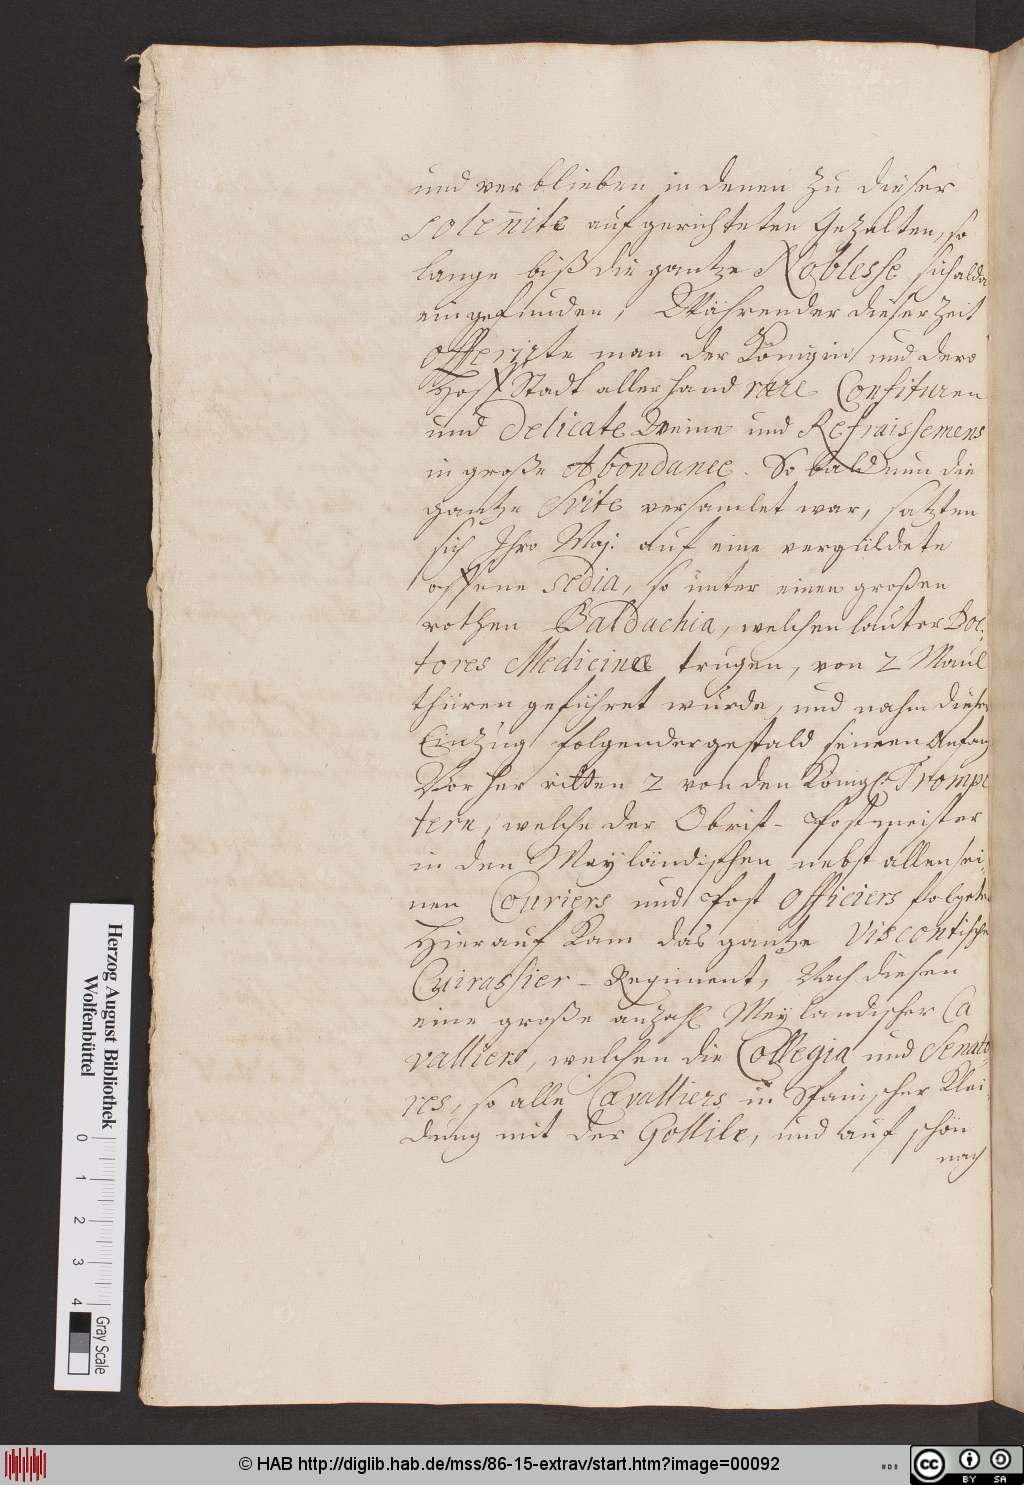 und verblieben in denen zu dieser
solennite aufgerichteten Gezalten, so
lange biß die gantze Noblesse sich alda
eingefunden, Währender dieser Zeit
offerirte man der Königin und dero
Hoff Stadt allerhand rare Confituren
und delicate Weine und Refraissemens
in große Abondance. So bald nun die
gantze Svite versamlet war, satzten
sich Ihro Maj: auf eine vergüldete
offene sedia, so unter einen großen
rothen Baldachia, welchen lauter Doc-
tores Medicinæ trugen, von 2 Maul
thüren geführet wurde, und nahm dieser
Einzug folgendergestald seinen Anfang
Vorher ritten 2 von den Königl: Trompe
tern, welche der Obrist-Postmeister
in den Meyländischen nebst allen sei-
nen Couriers und Post Officiers folgete
Hierauf kam das gantze Viscontische
Cuirassier-Regiment, Nach diesen
eine große anzahl Meylandischer Ca
valliers, welchen die Collegia und Senato-
res, so alle Cavalliers in Spanischer Klei-
dung mit der Gollile, und auf schön
nach
Herzog August Bibliothek
Wolfenbüttel
0 1 2 3 4
Gray Scale
© HAB http://diglib.hab.de/mss/86-15-extrav/start.htm?image=00092
cc BY SA